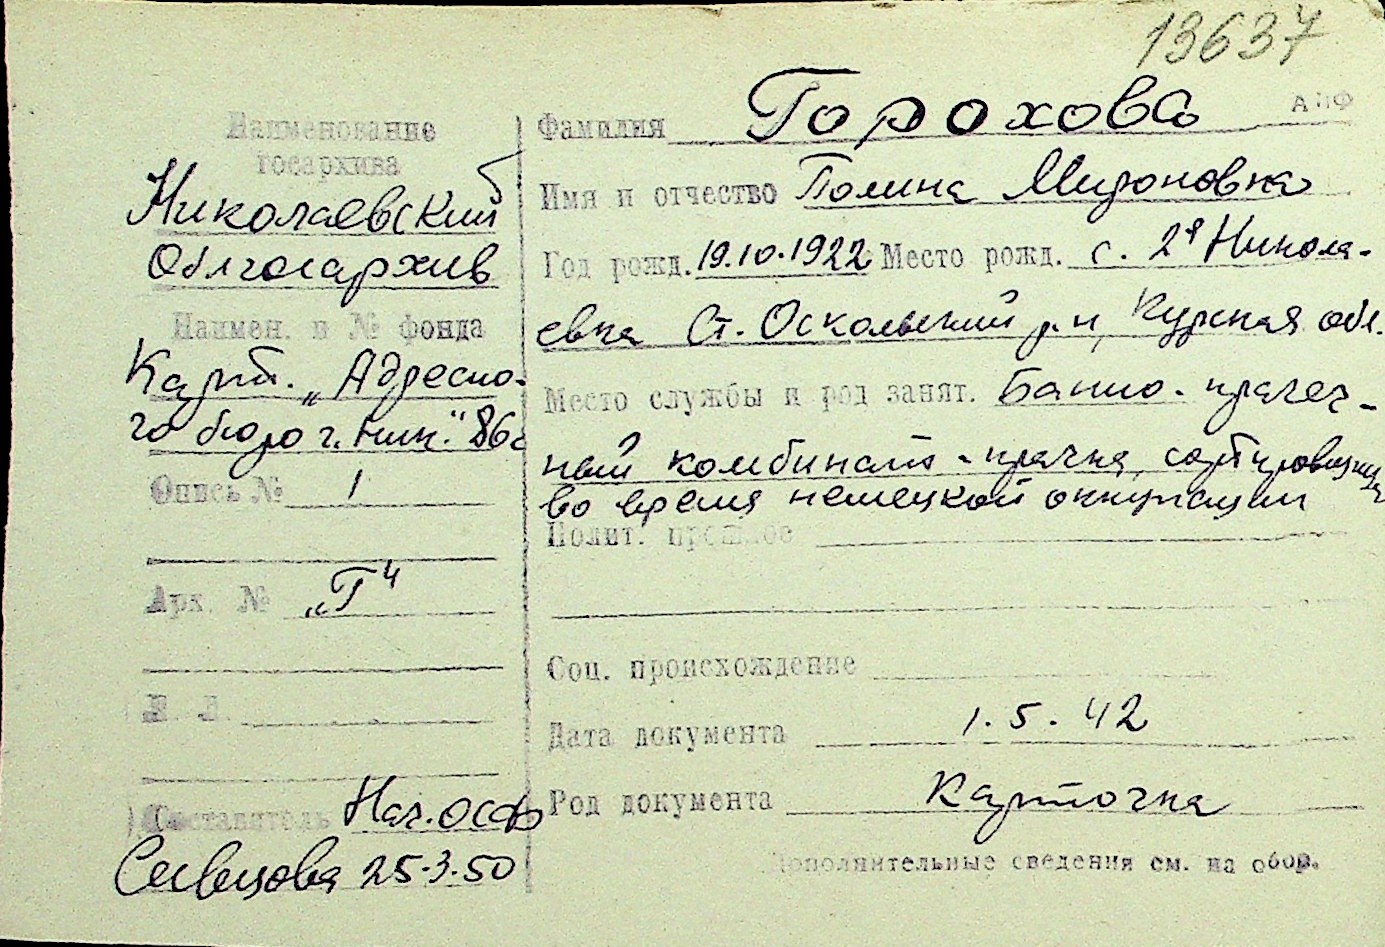 13637
АПФ
Наименование
госархива
Николаевский
Облгосархив
Наимен. и № фонда
Карт. „Адресно-
го бюро г. Ник." 86с
Опись № 1
Арх. № „Г"
Л. Л.
Составитель Нач. ОСФ
25.3.50
Фамилия Горохова
Имя и отчество Полина Мироновна
Год рожд. 19.10.1922 Место рожд. с. 2я Никола-
евка Ст. Оскольский р-н, Курская обл.
Место службы и род занят. Банно-прачеч-
ный комбинат - прачка, сортировщица
во время немецкой оккупации
Полит. прошлое
Соц. происхождение
Дата документа 1.5.42
Род документа Карточка
Дополнительные сведения см. на обор.